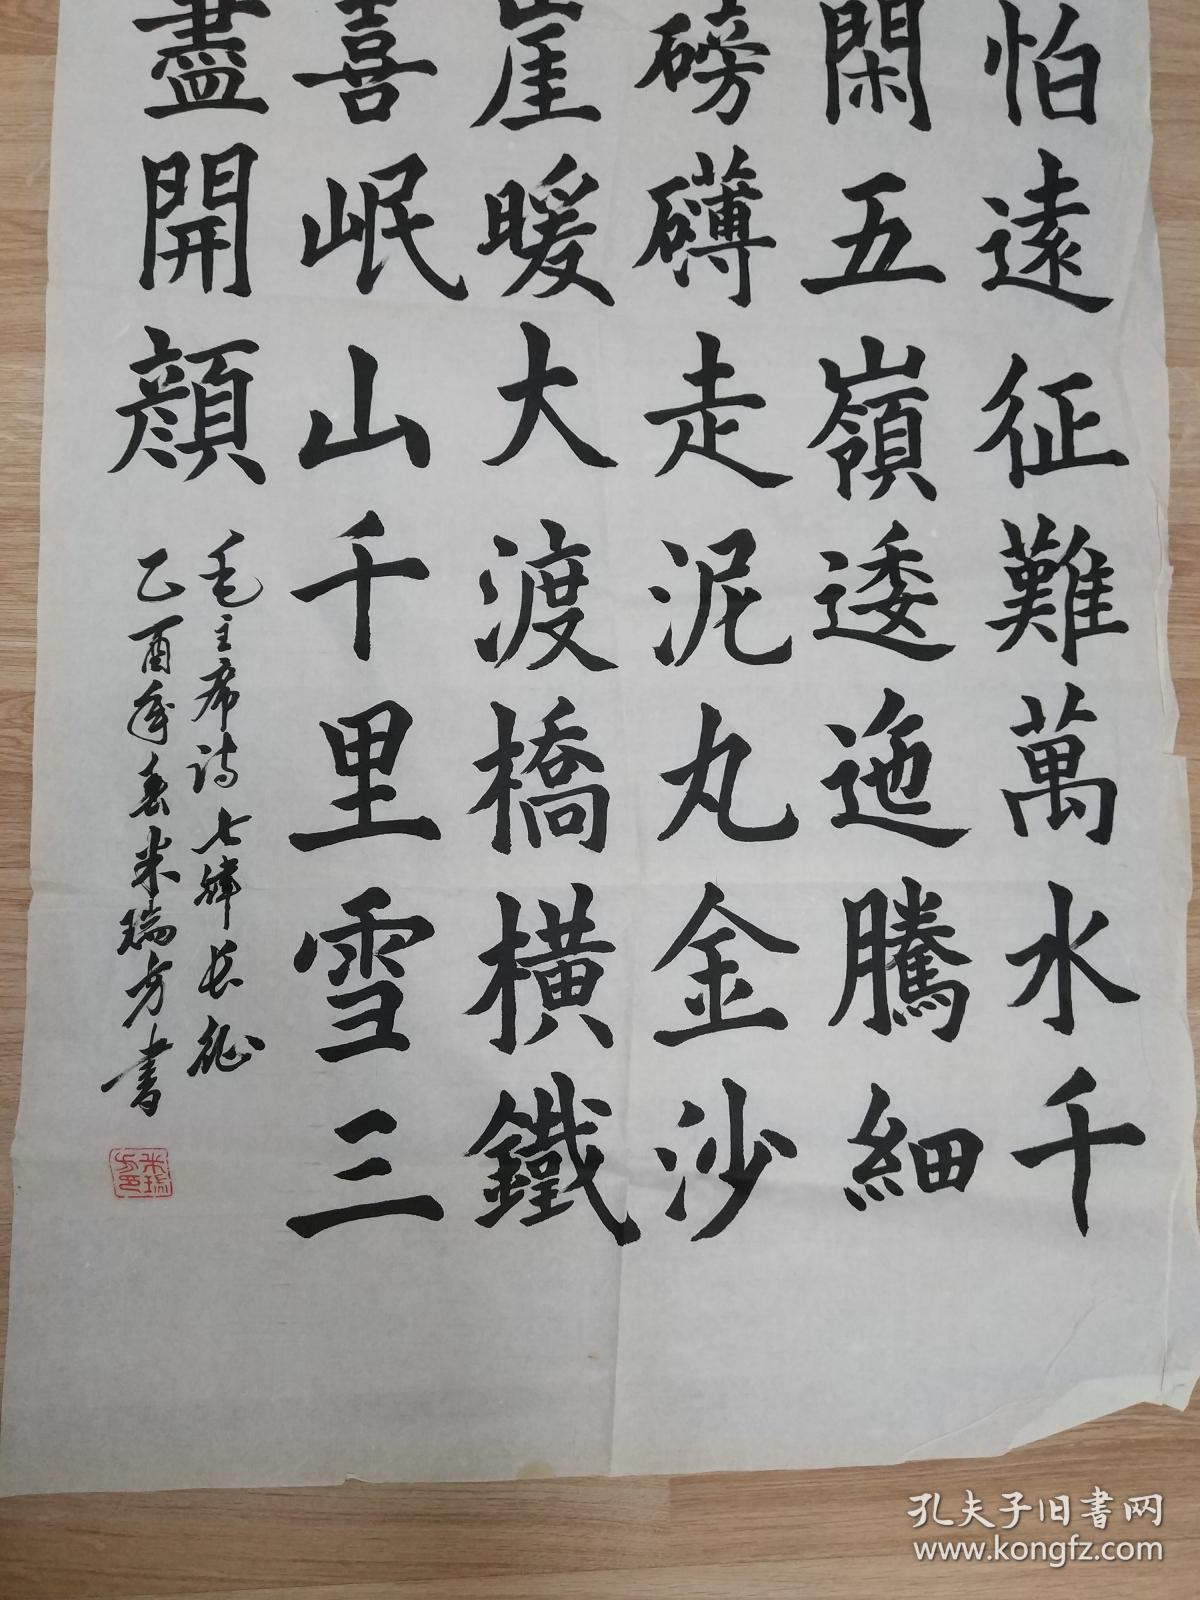 怕遠征難萬水千
閑五嶺逶迤騰細
磅礴走泥丸金沙
崖暖大渡橋橫鐵
喜岷山千里雪三
盡開顔
毛主席詩七律長征
乙酉年春米瑞方書
米瑞方印
孔夫子旧书网
www.kongfz.com